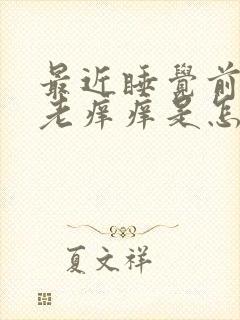 最近睡覺前
老痒痒是怎
夏文祥